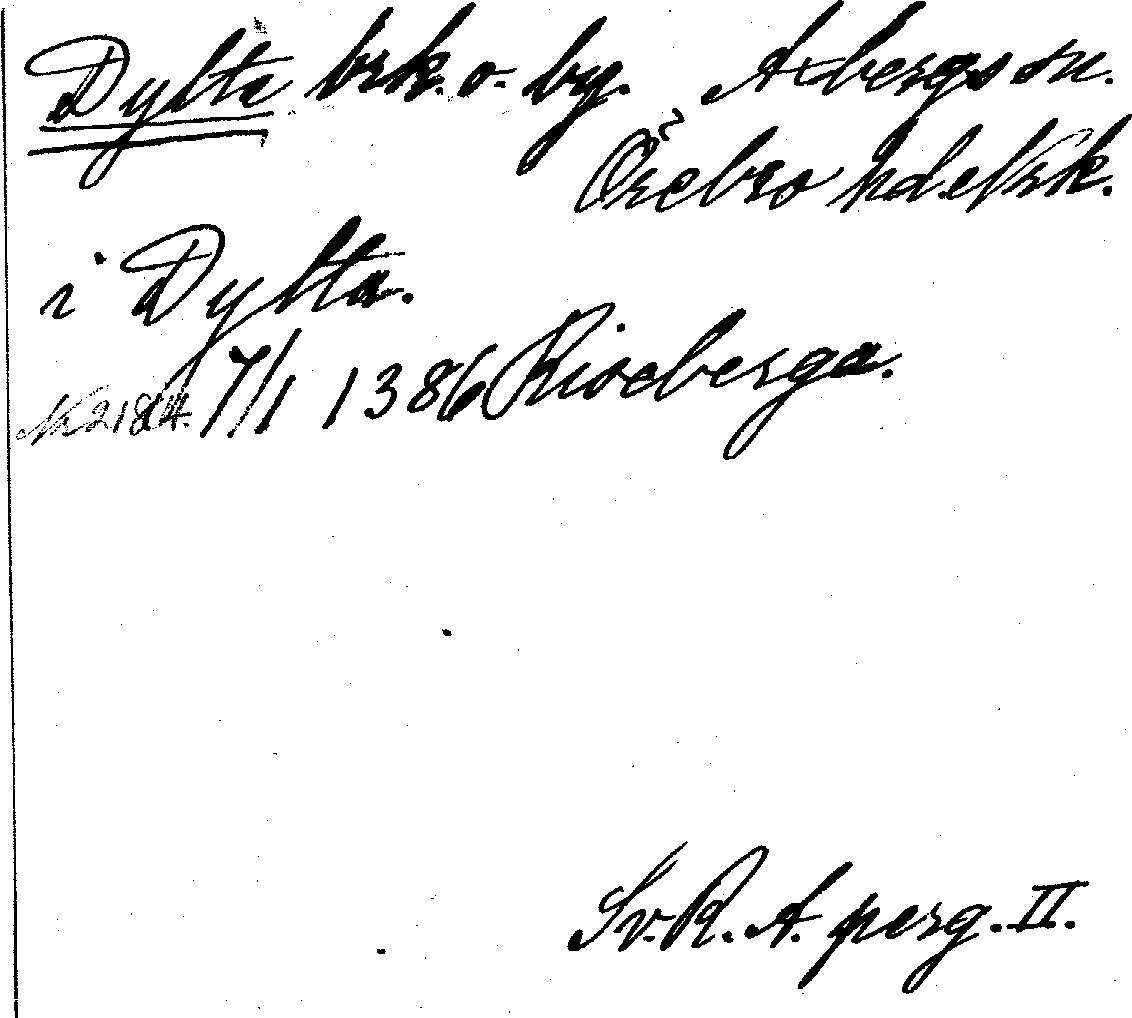 Dylta brk. o. by. Axbergs sn.
Örebro hd. Nrk.
i Dylta.
N 2184. 7/1 1386 Riseberga.
Sv. R. A. perg. II.